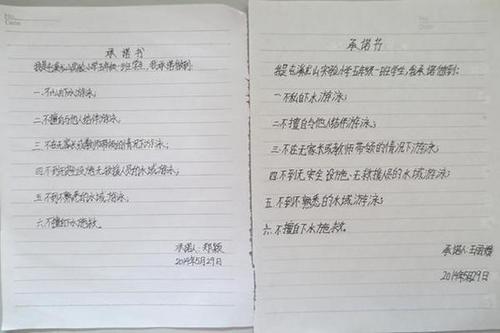 承诺书
我是屯溪龙山实验小学五年级一班学生，我承诺做到：
一.不私自下水游泳；
二.不擅自与他人结伴游泳；
三.不在无家长或教师带领的情况下游泳；
四.不到无安全设施、无救援人员的水域游泳；
五.不到不熟悉的水域游泳；
六.不擅自下水施救。
承诺人：郑颖
2014年5月29日
承诺书
我是屯溪龙山实验小学五年级一班学生，我承诺做到：
一.不私自下水游泳；
二.不擅自与他人结伴游泳；
三.不在无家长或教师带领的情况下游泳；
四.不到无安全设施、无救援人员的水域游泳；
五.不到不熟悉的水域游泳；
六.不擅自下水施救。
承诺人：王雨
2014年5月29日